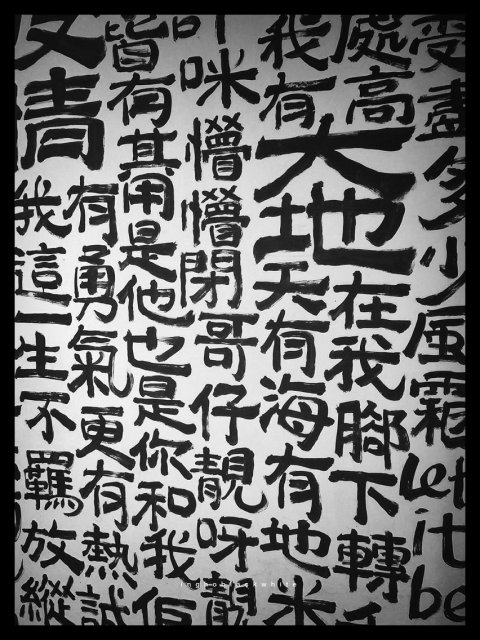 受盡多少風霜
let
it
be
處高
我有
大地
在我腳下轉
天有海有地
咪
懵懵閉
哥仔靚呀靚
皆有其用是他也是你和我佢
文青
有勇氣更有熱
我這一生不羈放縱